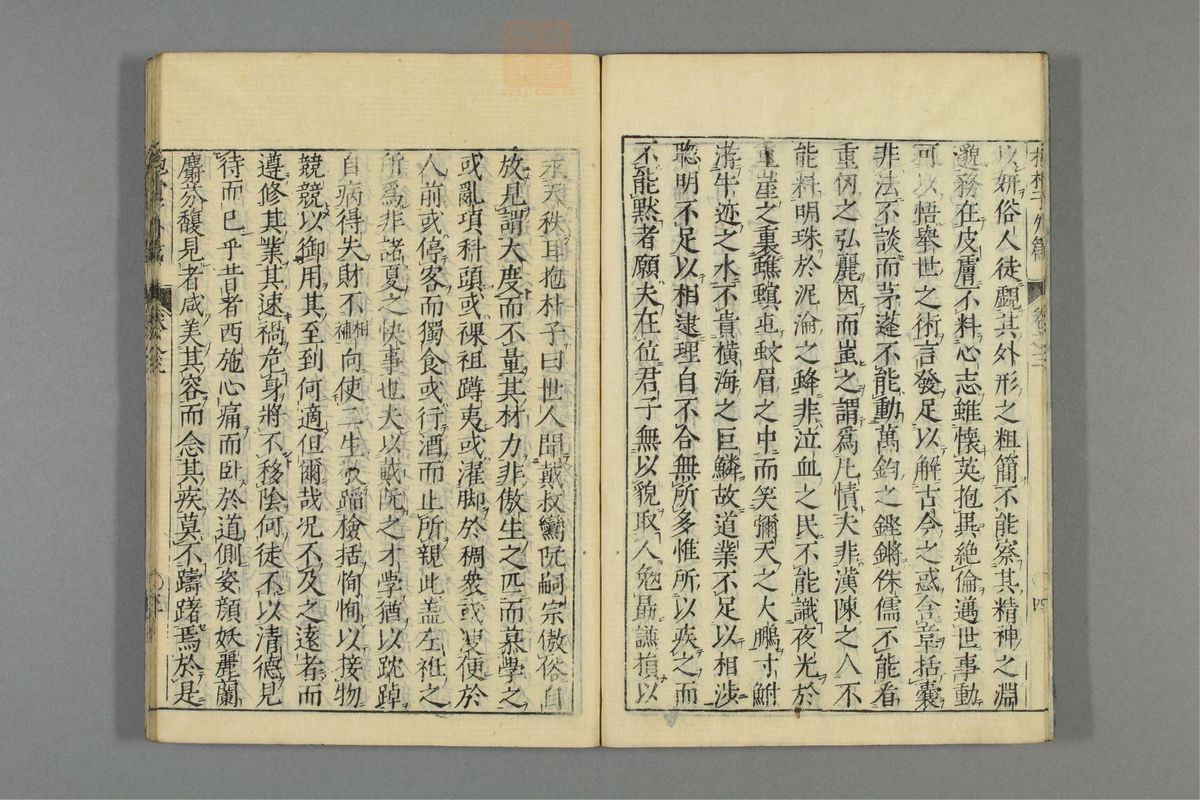 以妍俗人徒覩其外形之粗簡不能察其精神之淵
邈務在皮膚不料心志雖懷英抱異絕倫邁世事動
可以悟舉世之術言發足以解古今之惑含章括囊
非法不談而茅蓬不能動萬鈞之鏗鏘侏儒不能看
重仞之弘麗因而蚩之謂爲凡憒夫非漢陳之人不
能料明珠於泥淪之蜯非泣血之民不能識夜光於
重崖之裏蟭螟屯蚊眉之中而笑彌天之大鵬寸鮒
游牛迹之水不貴橫海之巨鱗故道業不足以相涉
聰明不足以相逮理自不合無所多惟所以疾之而
不能黙者願夫在位君子無以貌取人勉勗謙損以
永天秩耳抱朴子曰世人聞戴叔鸞阮嗣宗傲俗自
放見謂大度而不量其材力非傲生之匹而慕學之
或亂項科頭或裸袒蹲夷或濯脚於稠衆或溲便於
人前或停客而獨食或行酒而止所親此盖左衽之
所爲非諸夏之快事也夫以戴阮之才學猶以跎踔
自病得失財不相補向使二生敬蹈檢括恂恂以接物
競競以御用其至到何適但爾哉况不及之遠者而
遵修其業其速禍危身將不移陰何徒不以清德見
待而已乎昔者西施心痛而臥於道側姿顏妖麗蘭
麝芬馥見者咸美其容而念其疾莫不躊躇焉於是